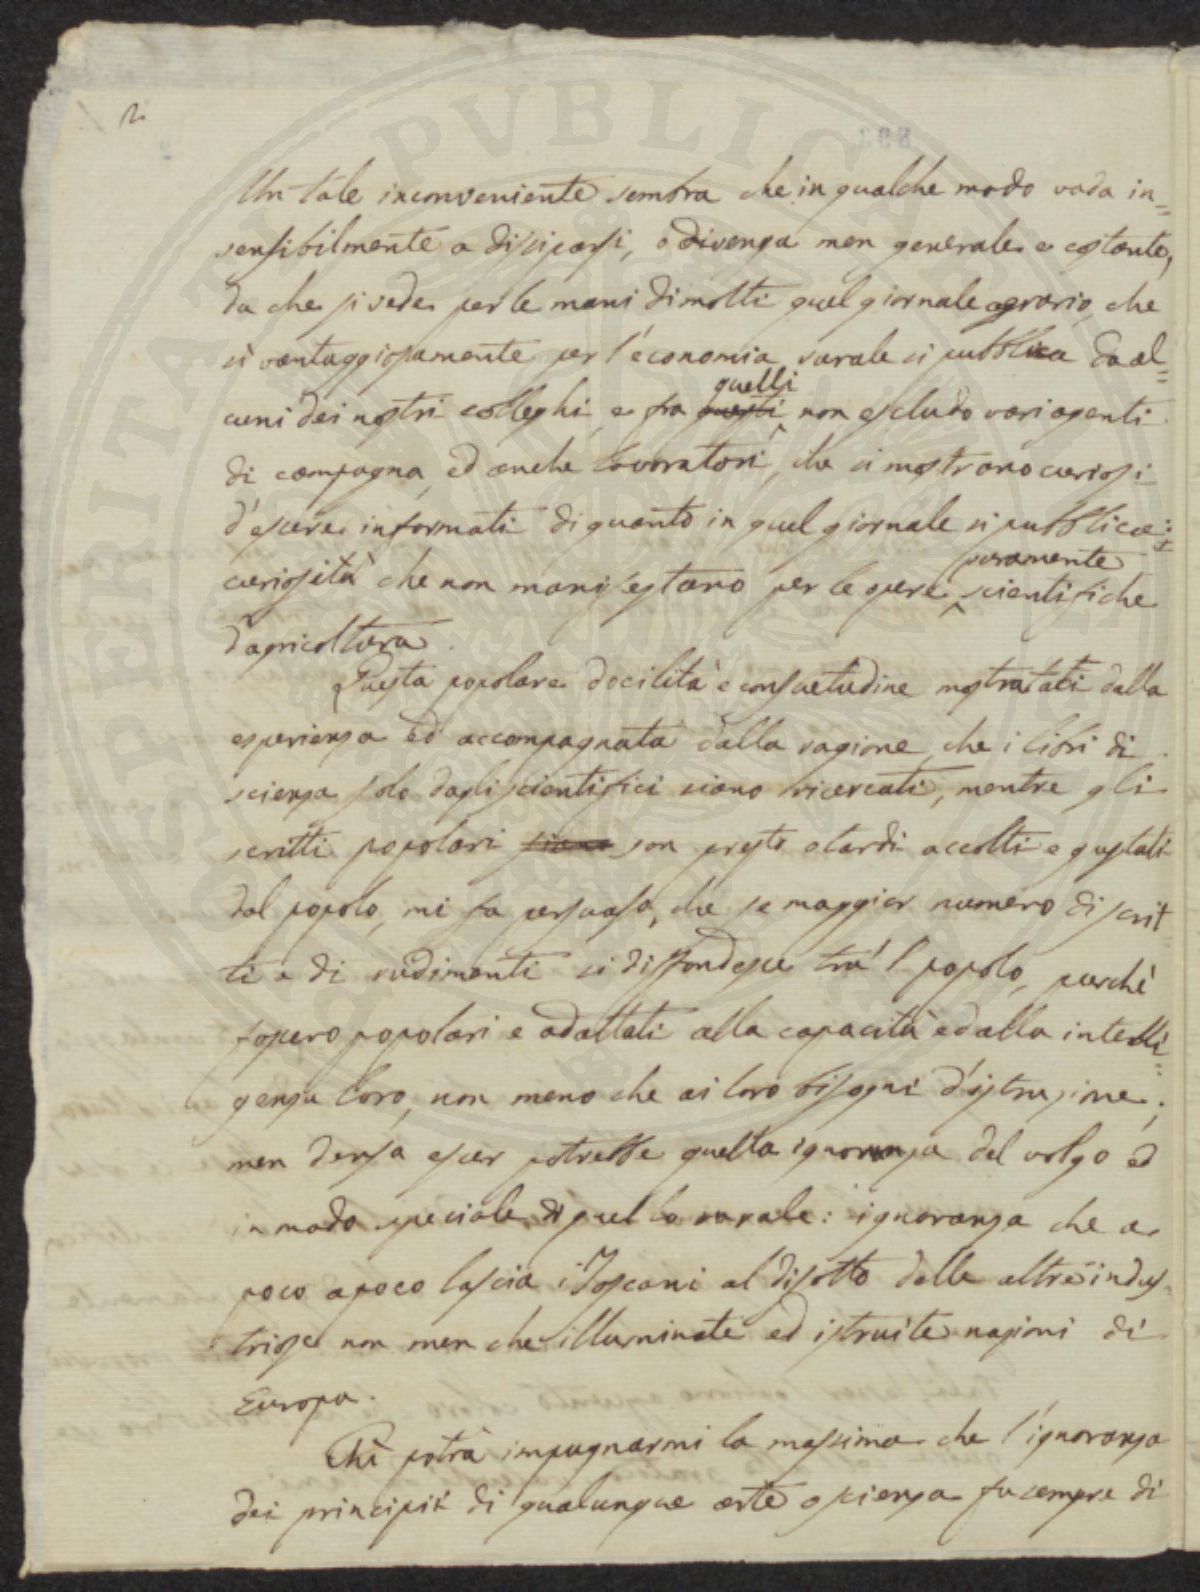 2.
Un tale inconveniente sembra che in qualche modo vada in=
sensibilmente a dissiparsi, o divenga men generale e costante,
da che si vede per le mani di molti quel giornale agrario, che
sì vantaggiosamente per l'economia rurale si pubblica da al=
quelli
cuni dei nostri colleghi, e fra questi non escludo vari agenti
di campagna, ed anche lavoratori, che si mostrano curiosi
d'essere informati di quanto in quel giornale si pubblica:
puramente
curiosità che non manifestano per le opere scientifiche
d'agricoltura.
Questa popolare docilità e consuetudine mostratati dalla
esperienza ed accompagnata dalla ragione, che i libri di
scienza solo dagli scientifici siano ricercati, mentre gli
scritti popolari siano son presto o tardi accolti e gustati
dal popolo, mi fa persuaso, che se maggior numero di scrit
ti e di rudimenti si diffondesse tra 'l popolo, purchè
fossero popolari e adattati alla capacità ed alla intelli=
genza loro, non meno che ai loro bisogni d'istruzione;
men densa esser potrebbe quella ignoranza del volgo ed
in modo speciale di quello rurale: ignoranza che a
poco a poco lascia i Toscani al disotto delle altre indus=
triose non men che illuminate ed istruite nazioni di
Europa.
Chi potrà impugnarmi la massima che l'ignoranza
dei principii di qualunque arte o scienza fu sempre di